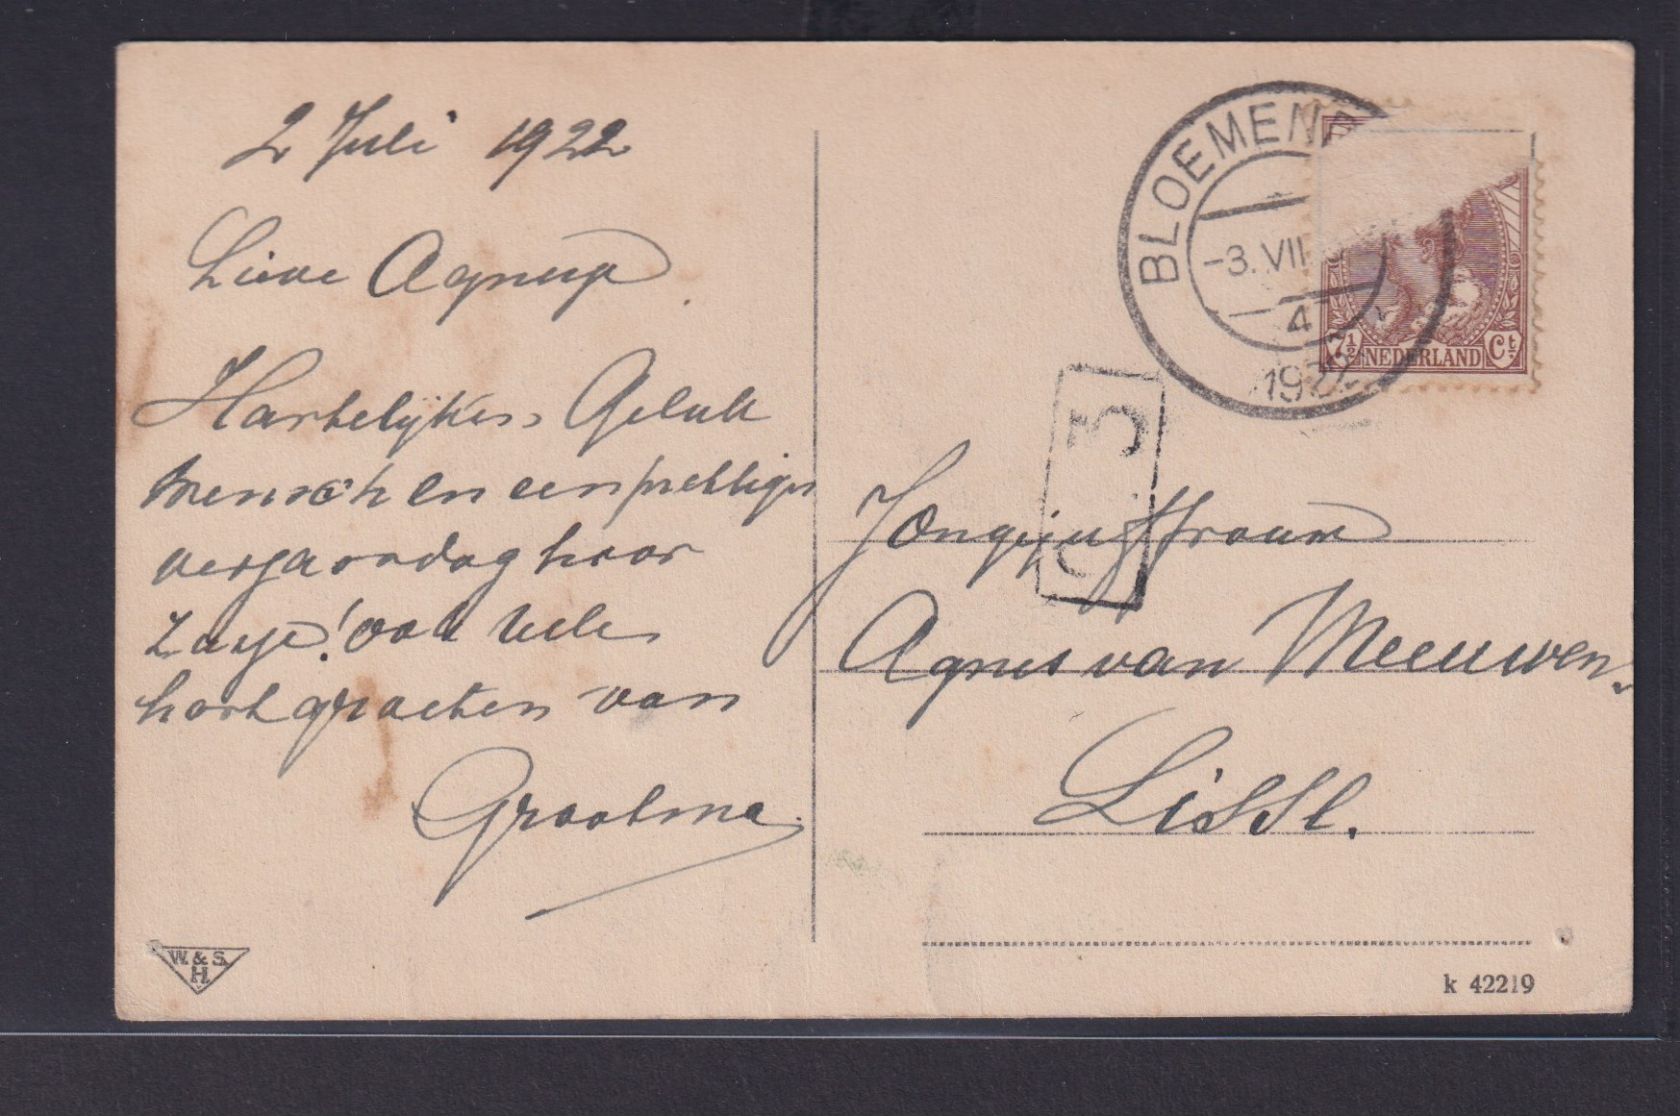 2 Juli 1922
Lieve Agnesje
Hartelijken Geluk
wensch en een prettigen
verjaardag hoor
zusje! ook vele
hart groeten van
Grootma
BLOEMENDA
-3. VII
4
192
7½ NEDERLAND Ct
3
Jongejuffrouw
Agnes van Meeuwen.
Lisse.
W. & S.
H
k 42219